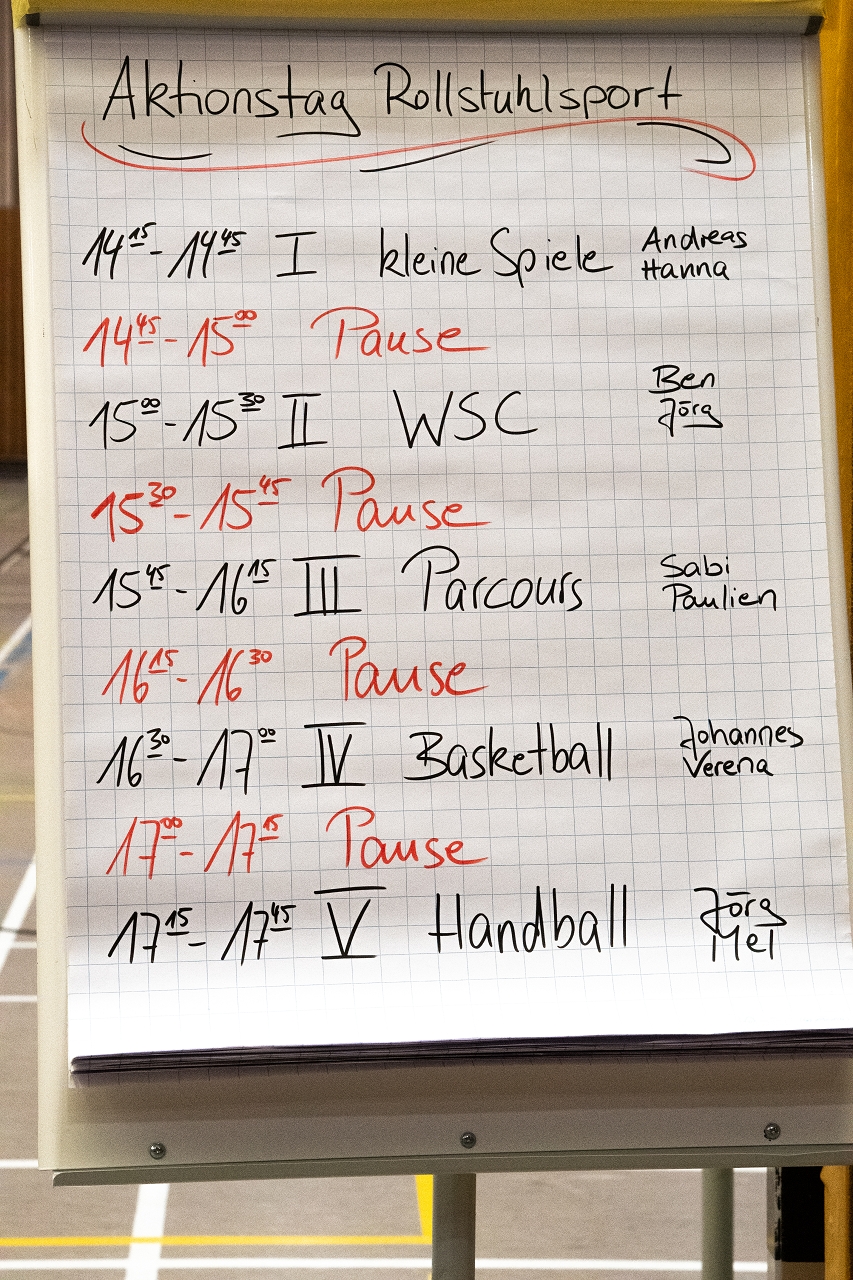 Aktionstag Rollstuhlsport
14¹⁵ - 14⁴⁵ I kleine Spiele Andreas Hanna
14⁴⁵ - 15⁰⁰ Pause
15⁰⁰ - 15³⁰ II WSC Ben Jörg
15³⁰ - 15⁴⁵ Pause
15⁴⁵ - 16¹⁵ III Parcours Sabi Paulien
16¹⁵ - 16³⁰ Pause
16³⁰ - 17⁰⁰ IV Basketball Johannes Verena
17⁰⁰ - 17¹⁵ Pause
17¹⁵ - 17⁴⁵ V Handball Jörg Mel